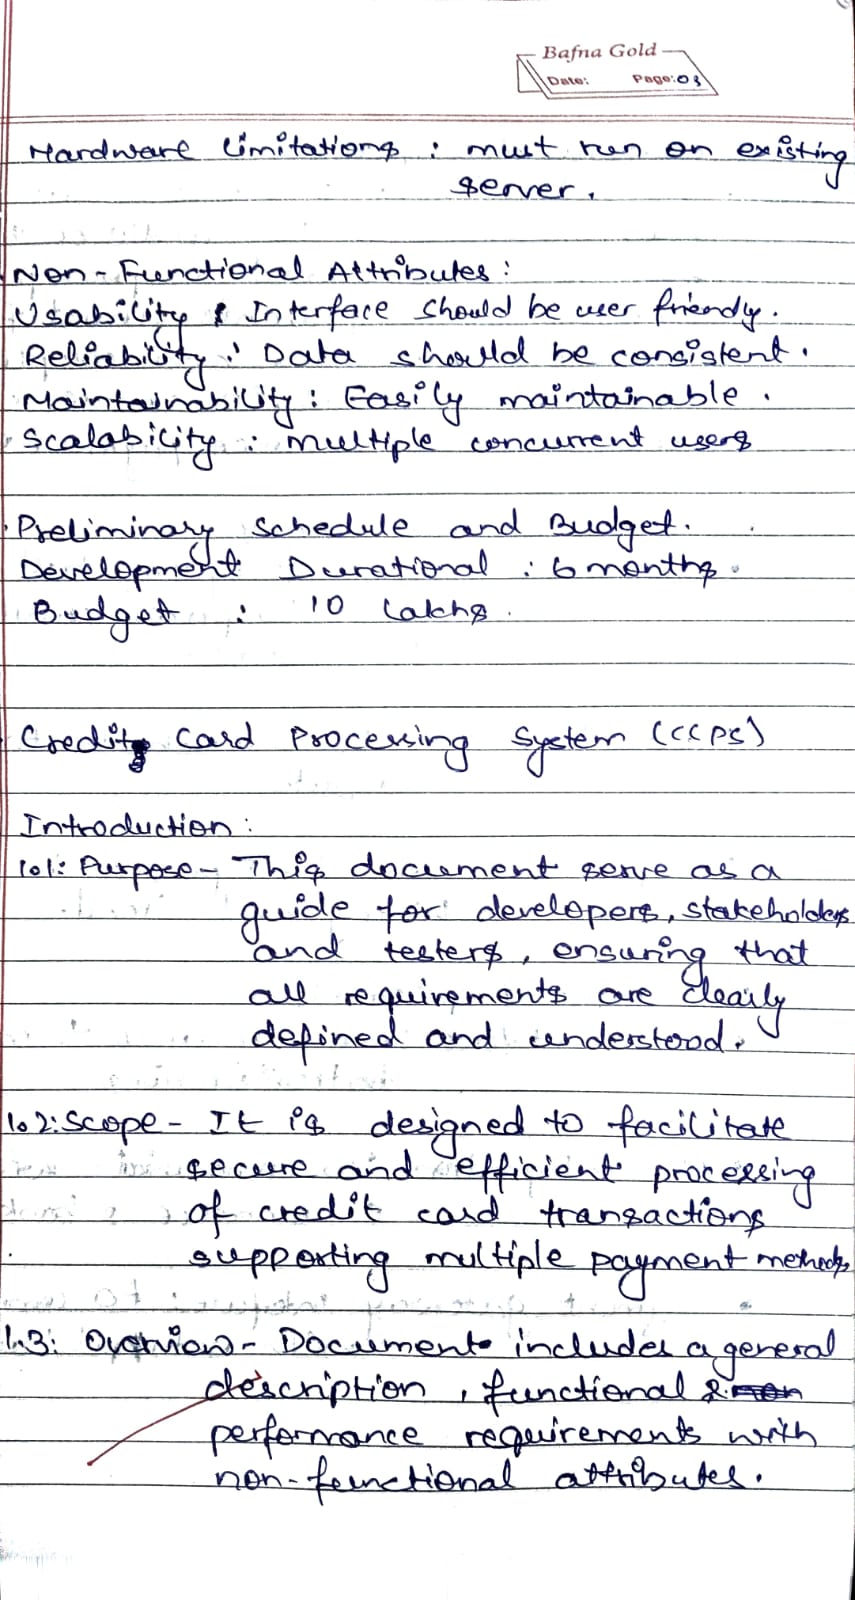 Bafna Gold
Date: Page: 03
Hardware limitations : must run on existing
server.
Non-Functional Attributes :
Usability : Interface should be user friendly.
Reliability : Data should be consistent.
Maintainability : Easily maintainable.
Scalability : multiple concurrent users
Preliminary Schedule and Budget.
Development Durational : 6 months.
Budget : 10 lakhs.
Credit Card Processing System (CCPS)
Introduction :
1.1: Purpose - This document serve as a
guide for developers, stakeholders
and testers, ensuring that
all requirements are clearly
defined and understood.
1.2: Scope - It is designed to facilitate
secure and efficient processing
of credit card transactions
supporting multiple payment methods
1.3: Overview - Document includes a general
description, functional &
performance requirements with
non-functional attributes.